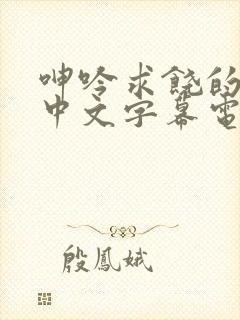 呻吟求饶的
中文字幕電
殷鳳娥